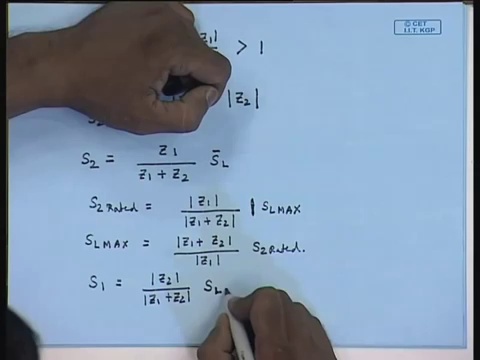 © CET
I.I.T. KGP
> 1
|Z2|
S2 = Z1 / Z1 + Z2 S̄L
S2 Rated = |Z1| / |Z1 + Z2| | SLMAX
SLMAX = |Z1 + Z2| / |Z1| S2 Rated.
S1 = |Z2| / |Z1 + Z2|